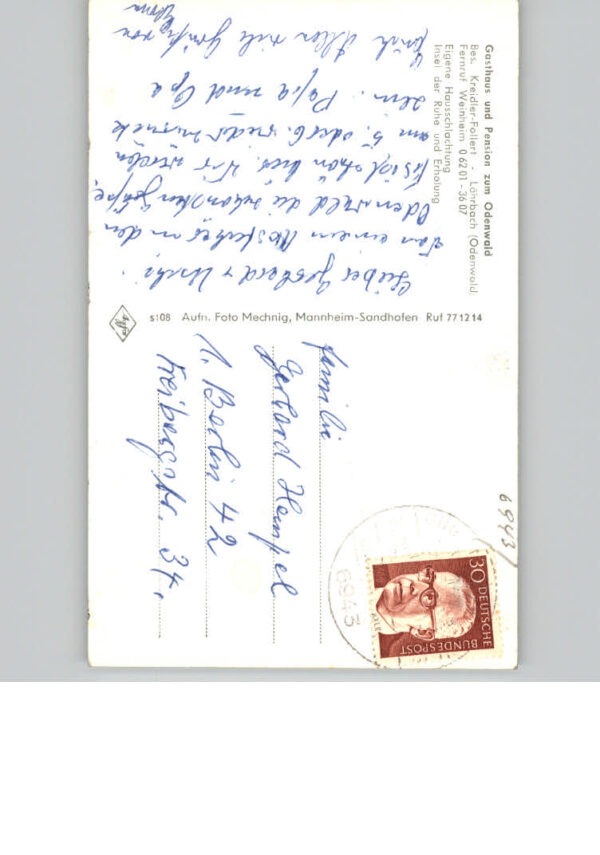 Gasthaus und Pension zum Odenwald
Bes. Kreidler-Follert - Löhrbach (Odenwald)
Fernruf Weinheim 0 62 01 - 36 07
Eigene Hausschlachtung
Insel der Ruhe und Erholung
Lieber Gerhard + Uschi
Von einem in den
Odenwald die schönsten Grüße,
Es ist schön hier. Wir werden
am 5. oder 6. wieder zurück
sein. Papa und Opa
Euch Allen viele Grüße von
s108 Aufn. Foto Mechnig, Mannheim-Sandhofen Ruf 77 12 14
Agfa
Familie
Gerhard Hempel
1. Berlin 42
Freibergstr. 34.
6943
6943
30 DEUTSCHE
BUNDESPOST